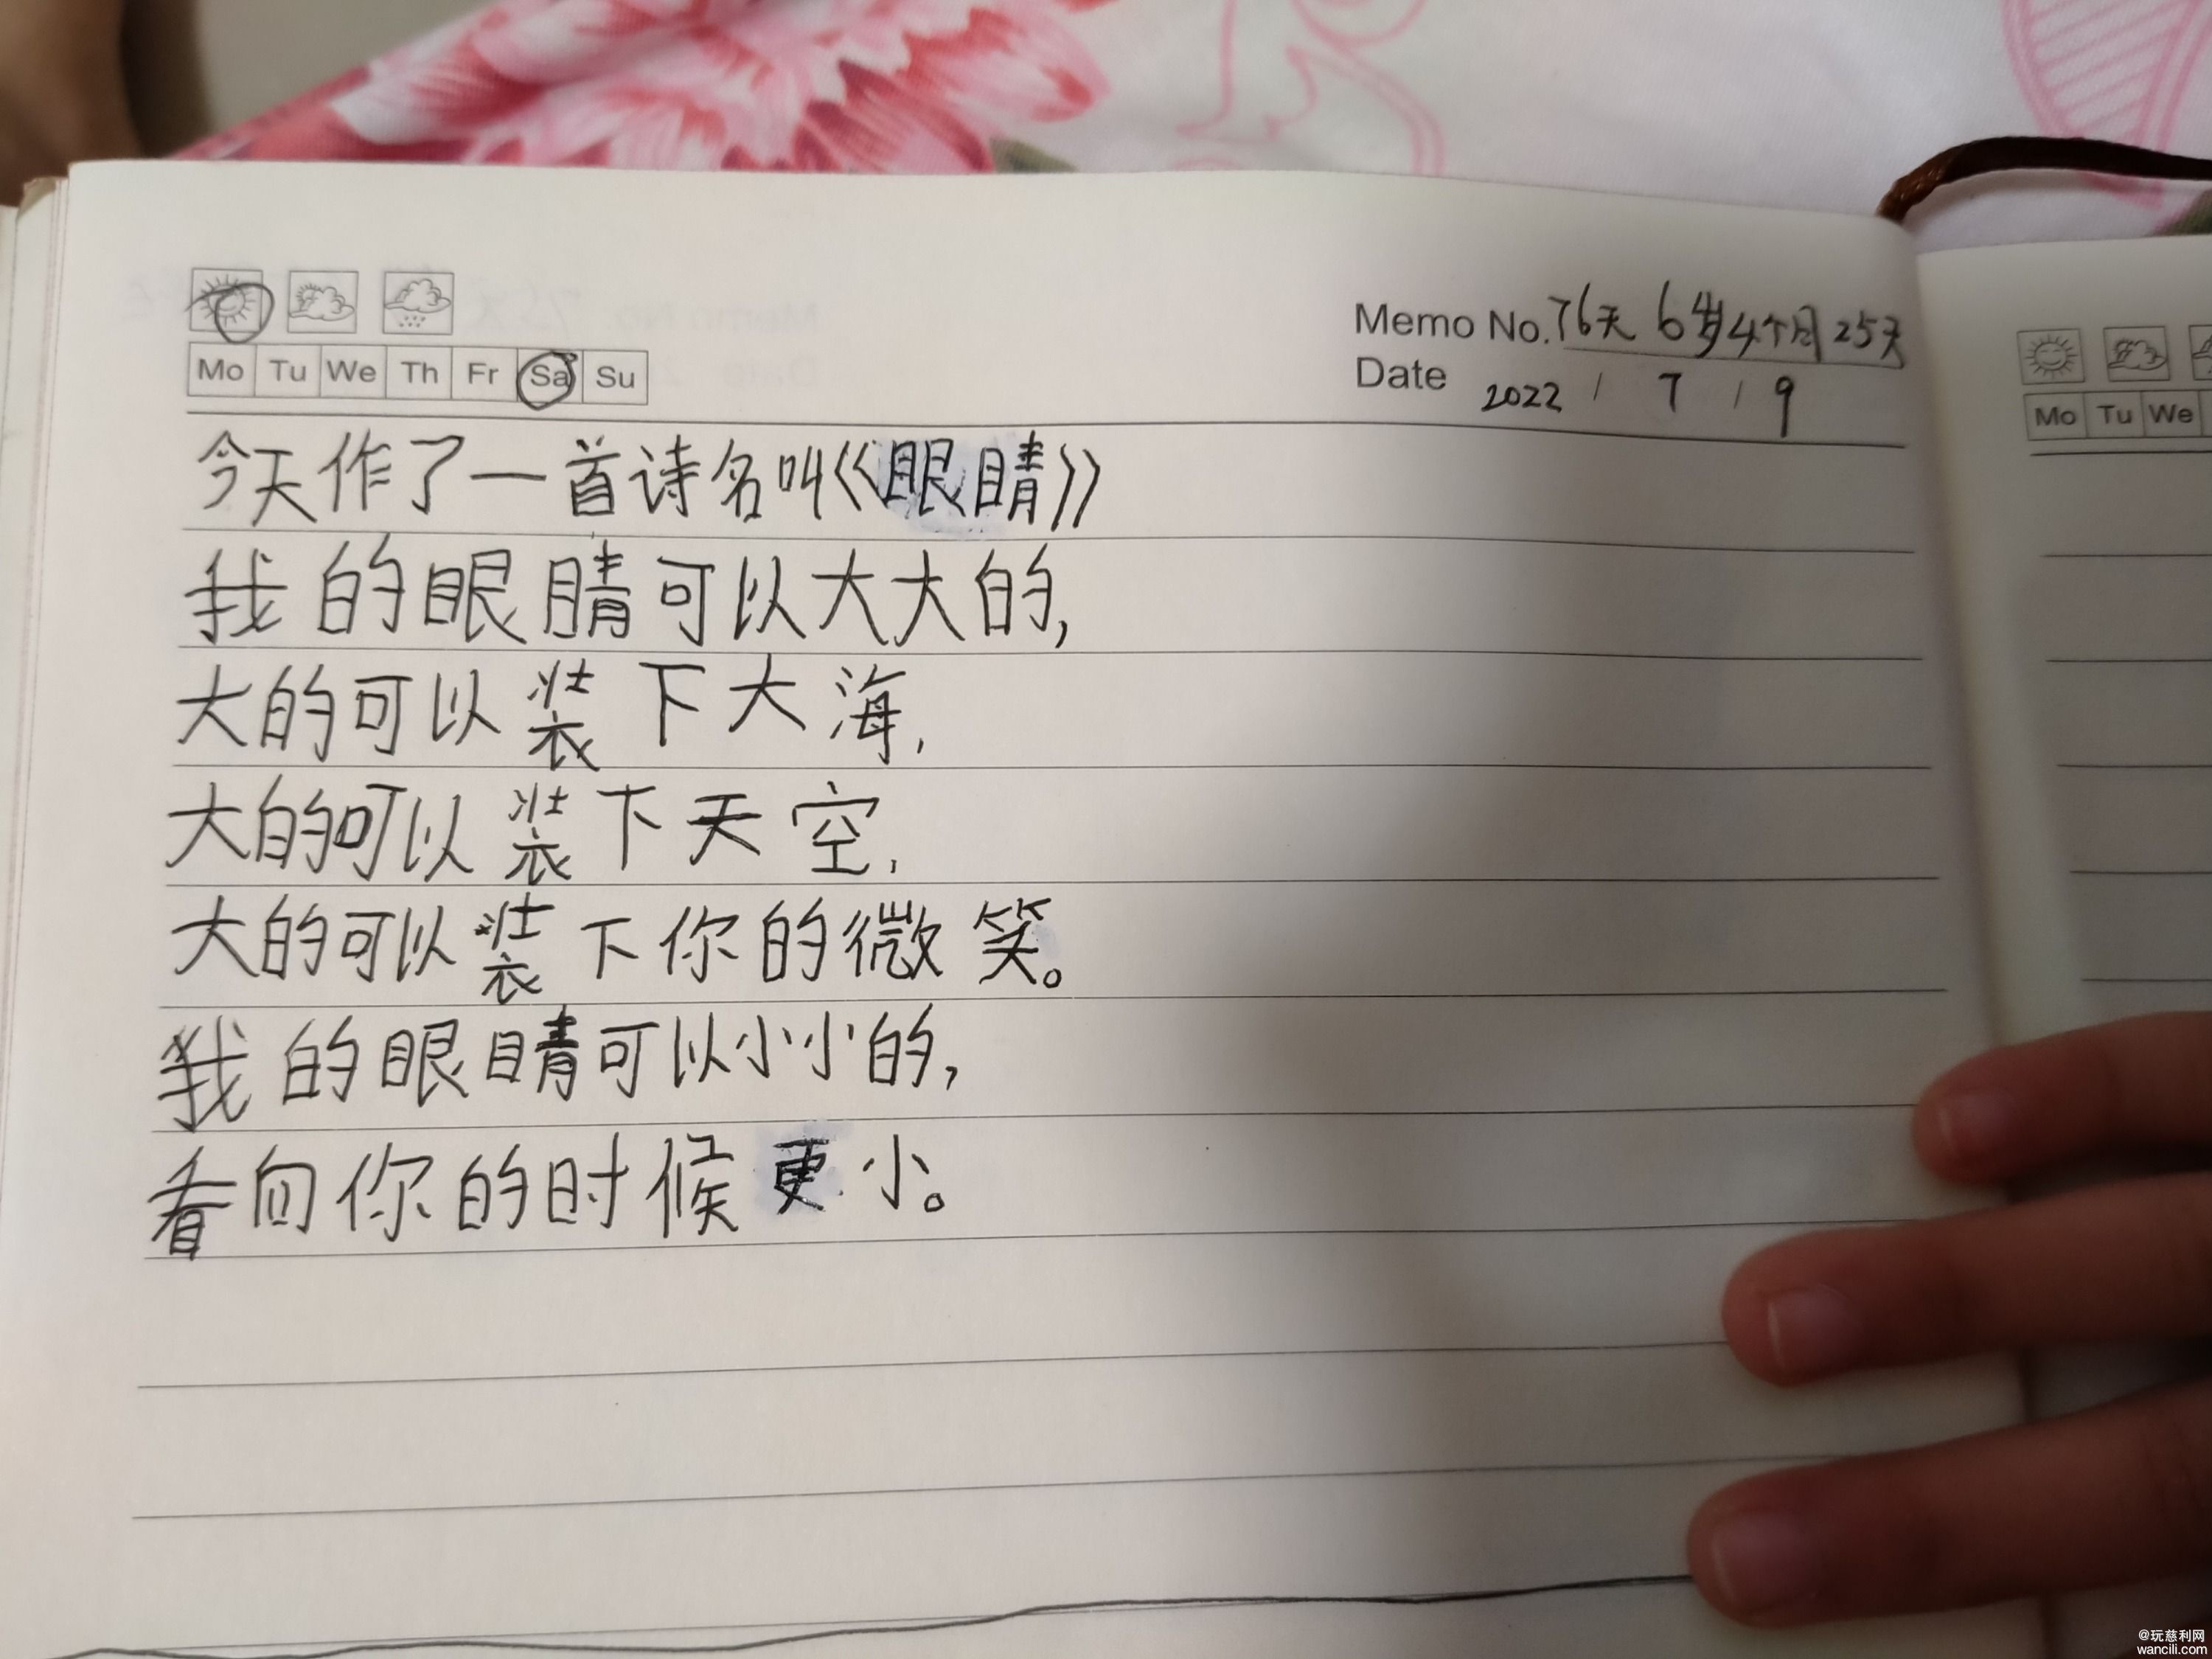 Memo No. 76天 6岁4个月25天
Mo Tu We Th Fr Sa Su
Date 2022 / 7 / 9
今天作了一首诗名叫《眼睛》
我的眼睛可以大大的，
大的可以装下大海，
大的可以装下天空，
大的可以装下你的微笑。
我的眼睛可以小小的，
看向你的时候更小。
Mo Tu We
@玩慈利网
wancili.com